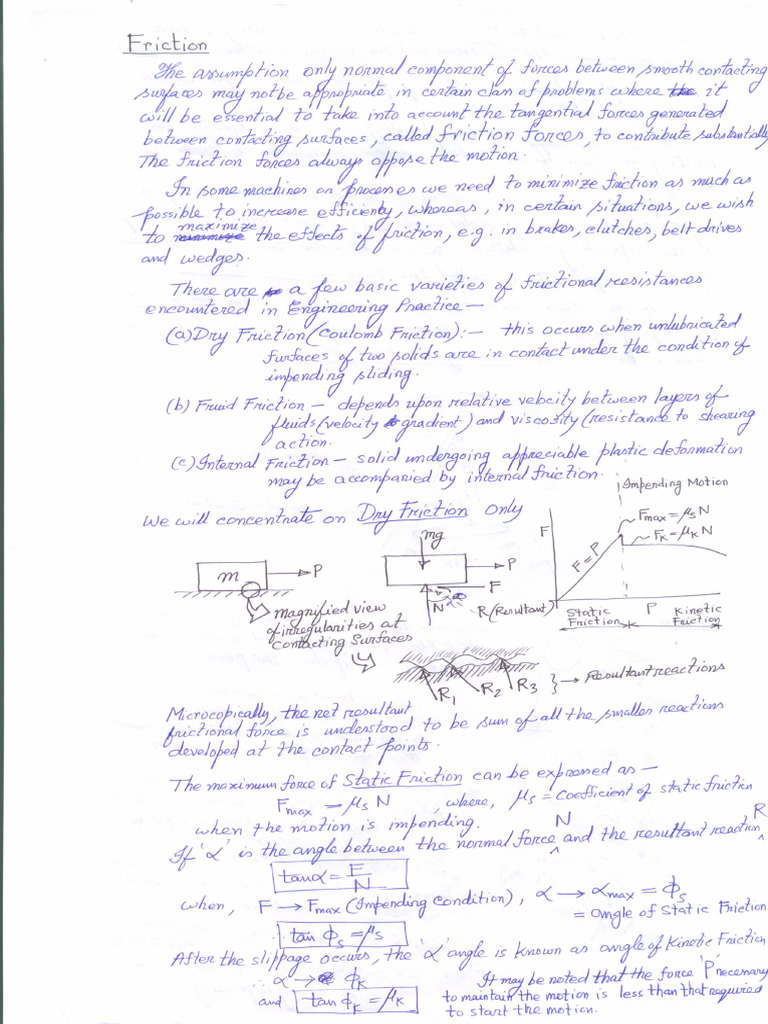 Friction
The assumption only normal component of forces between smooth contacting
surfaces may not be appropriate in certain class of problems where it
will be essential to take into account the tangential forces generated
between contacting surfaces, called friction forces, to contribute substantially.
The friction forces always oppose the motion.
In some machines or processes we need to minimize friction as much as
possible to increase efficiency, whereas, in certain situations, we wish
to maximize the effects of friction, e.g. in brakes, clutches, belt drives
and wedges.
There are a few basic varieties of frictional resistances
encountered in Engineering Practice —
(a) Dry Friction (Coulomb Friction):— this occurs when unlubricated
surfaces of two solids are in contact under the condition of
impending sliding.
(b) Fluid Friction — depends upon relative velocity between layers of
fluids (velocity gradient) and viscosity (resistance to shearing
action.
(c) Internal Friction — solid undergoing appreciable plastic deformation
may be accompanied by internal friction.
We will concentrate on Dry Friction only
Impending Motion
F
Fmax = μsN
FK = μKN
F = P
Static Friction
P
Kinetic Friction
m
P
mg
P
F
N
α
R (Resultant)
Magnified view
of irregularities at
Contacting Surfaces
R1 R2 R3 } → Resultant reactions
Microcopically, the net resultant
frictional force is understood to be sum of all the smaller reactions
developed at the contact points.
The maximum force of Static Friction can be expressed as —
Fmax = μs N , where, μs = Coefficient of static friction
when the motion is impending.
If 'α' is the angle between the normal force N and the resultant reaction R,
tanα = F/N
when, F → Fmax (Impending Condition), α → αmax = ϕs
= angle of Static Friction
tan ϕs = μs
After the slippage occurs, the 'α' angle is known as angle of Kinetic Friction
∴ α → ϕK
and tan ϕK = μK
It may be noted that the force 'P' necessary
to maintain the motion is less than that required
to start the motion.